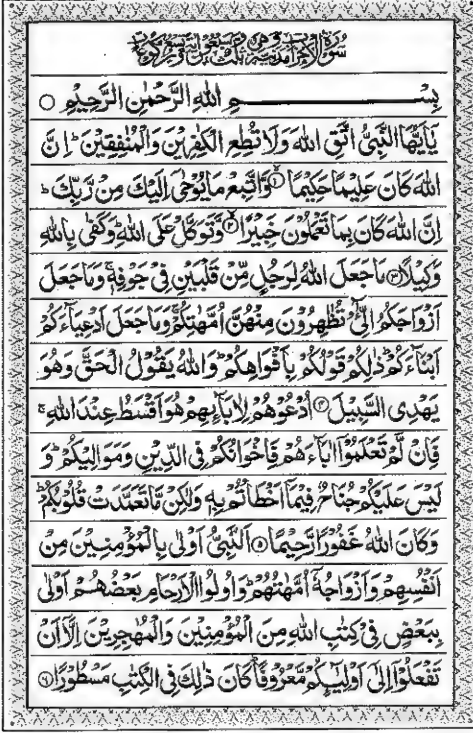 سُوْرَةُ الْاَحْزَابِ مَدَنِيَّةٌ وَّهِيَ ثَلٰثٌ وَّسَبْعُوْنَ اٰيَةً وَّتِسْعُ رُكُوْعَاتٍ
بِسْــــــــــمِ اللهِ الرَّحْمٰنِ الرَّحِيْمِ ○
يٰٓاَيُّهَا النَّبِيُّ اتَّقِ اللهَ وَلَا تُطِعِ الْكٰفِرِيْنَ وَالْمُنٰفِقِيْنَ ؕ اِنَّ
اللهَ كَانَ عَلِيْمًا حَكِيْمًا ۙ﴿۱﴾ وَّاتَّبِعْ مَا يُوْحٰٓى اِلَيْكَ مِنْ رَّبِّكَ ؕ
اِنَّ اللهَ كَانَ بِمَا تَعْمَلُوْنَ خَبِيْرًا ۙ﴿۲﴾ وَّتَوَكَّلْ عَلَى اللهِ ؕ وَكَفٰى بِاللهِ
وَكِيْلًا ﴿۳﴾ مَا جَعَلَ اللهُ لِرَجُلٍ مِّنْ قَلْبَيْنِ فِيْ جَوْفِهٖ ۚ وَمَا جَعَلَ
اَزْوَاجَكُمُ الّٰٓـِٔيْ تُظٰهِرُوْنَ مِنْهُنَّ اُمَّهٰتِكُمْ ۚ وَمَا جَعَلَ اَدْعِيَآءَكُمْ
اَبْنَآءَكُمْ ؕ ذٰلِكُمْ قَوْلُكُمْ بِاَفْوَاهِكُمْ ؕ وَاللهُ يَقُوْلُ الْحَقَّ وَهُوَ
يَهْدِي السَّبِيْلَ ﴿۴﴾ اُدْعُوْهُمْ لِاٰبَآئِهِمْ هُوَ اَقْسَطُ عِنْدَ اللهِ ۚ
فَاِنْ لَّمْ تَعْلَمُوْٓا اٰبَآءَهُمْ فَاِخْوَانُكُمْ فِي الدِّيْنِ وَمَوَالِيْكُمْ ؕ وَ
لَيْسَ عَلَيْكُمْ جُنَاحٌ فِيْمَآ اَخْطَاْتُمْ بِهٖ وَلٰكِنْ مَّا تَعَمَّدَتْ قُلُوْبُكُمْ ؕ
وَكَانَ اللهُ غَفُوْرًا رَّحِيْمًا ﴿۵﴾ اَلنَّبِيُّ اَوْلٰى بِالْمُؤْمِنِيْنَ مِنْ
اَنْفُسِهِمْ وَاَزْوَاجُهٗٓ اُمَّهٰتُهُمْ ؕ وَاُولُوا الْاَرْحَامِ بَعْضُهُمْ اَوْلٰى
بِبَعْضٍ فِيْ كِتٰبِ اللهِ مِنَ الْمُؤْمِنِيْنَ وَالْمُهٰجِرِيْنَ اِلَّآ اَنْ
تَفْعَلُوْٓا اِلٰٓى اَوْلِيٰٓئِكُمْ مَّعْرُوْفًا ؕ كَانَ ذٰلِكَ فِي الْكِتٰبِ مَسْطُوْرًا ﴿۶﴾